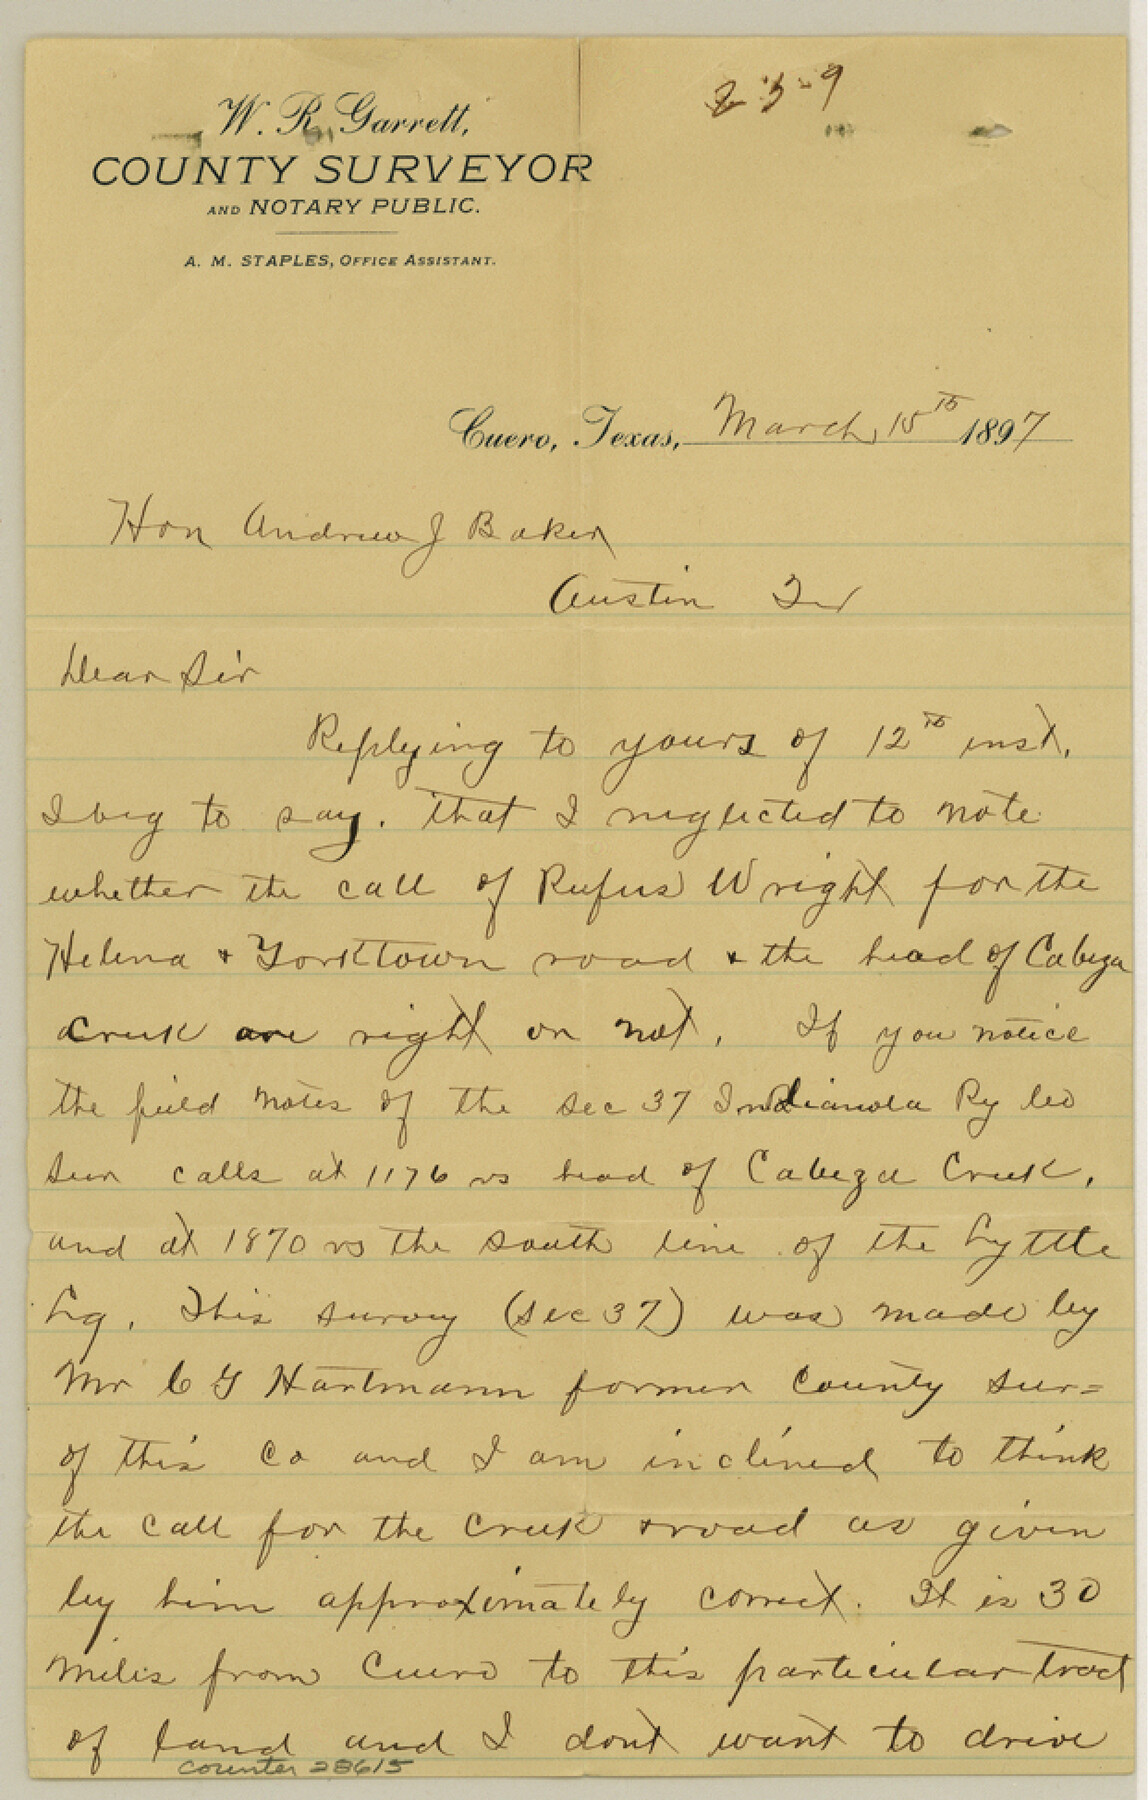 2-3-9
W. R. Garrett,
COUNTY SURVEYOR
AND NOTARY PUBLIC.
A. M. STAPLES, OFFICE ASSISTANT.
Cuero, Texas, March 15th 1897
Hon Andrew J Baker
Austin Tex
Dear Sir
Replying to yours of 12th inst.
I beg to say. that I neglected to note
whether the call of Rufus Wright for the
Helena & Yorktown road & the head of Cabeza
Creek are right or not. If you notice
the field notes of the sec 37 Indianola Ry Co
Sur calls at 1176 vs head of Cabeza Creek,
and at 1870 vs the south line of the Lyttle
Lg. This survey (sec 37) was made by
Mr C G Hartmann former County Sur=
of this Co and I am inclined to think
the call for the creek & road as given
by him approximately correct. It is 30
miles from Cuero to this particular tract
of land and I dont want to drive
counter 28615